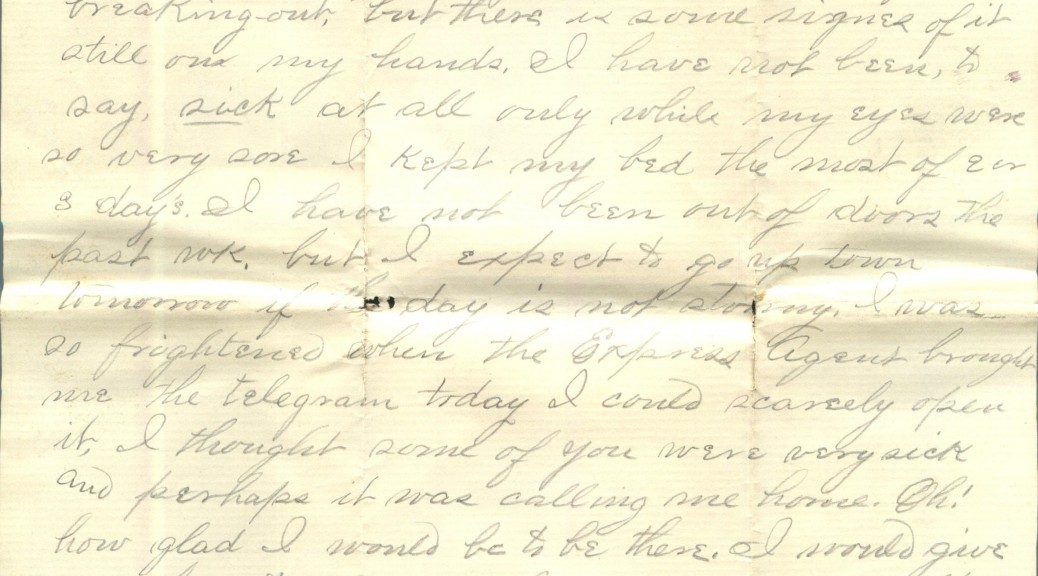 breaking-out, but there is some signes of it
still on my hands. I have not been, to
say, sick at all only while my eyes were
so very sore I kept my bed the most of 2 or
3 days. I have not been out of doors the
past wk. but I expect to go up town
tomorrow if the day is not stormy. I was
so frightened when the Express Agent brought
me the telegram today I could scarcely open
it, I thought some of you were very sick
and perhaps it was calling me home. Oh!
how glad I would be to be there. I would give